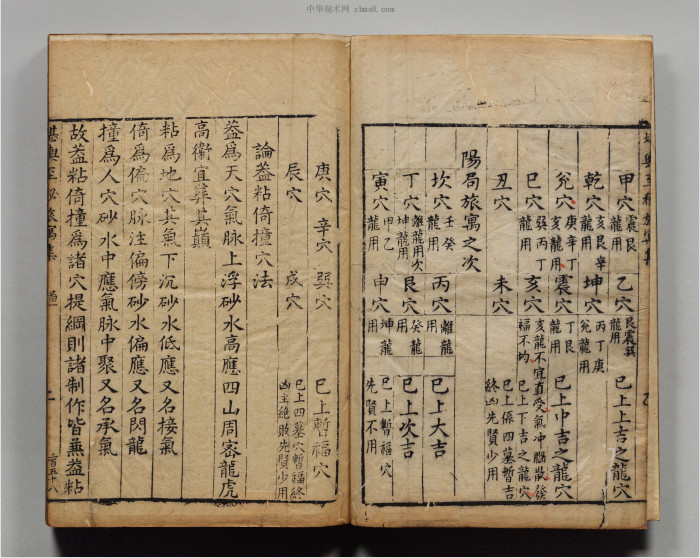 中华秘术网 zhms8.com
甲穴 震艮龍用 乙穴 艮震巽龍用 已上上吉之龍穴
乾穴 亥艮辛龍用 坤穴 丙丁庚兌龍用
兊穴 庚辛丁亥龍用 震穴 丁艮龍用 已上中吉之龍穴
巳穴 巽丙丁龍用 亥穴 亥龍不宜直受氣冲腦散發福不均 已上下吉之龍穴
丑穴 未穴 已上係四墓暫吉終凶先賢少用
陽局旅寓之次
坎穴 壬癸龍用 丙穴 離龍用 已上大吉
丁穴 離龍用次坤龍用 艮穴 癸龍用 已上次吉
寅穴 甲乙龍用 申穴 坤龍用 已上暫福穴先賢不用
庚穴 辛穴 巽穴 已上暫福穴
辰穴 戌穴 已上四墓穴暫福終凶主絶敗先賢少用
論葢粘倚撞穴法
葢爲天穴氣脉上浮砂水高應四山周宻龍虎
高衞宜葬其巔
粘爲地穴其氣下沉砂水低應又名接氣
倚爲偏穴脉注偏傍砂水偏應又名閃龍
撞爲人穴砂水中應氣脉中聚又名承氣
故葢粘倚撞爲諸穴提綱則諸制作皆無葢粘
堪輿至秘旅寓集
二百五十八